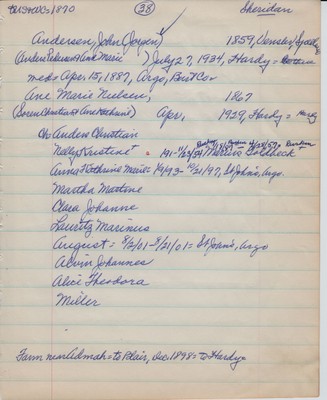 38
Sheridan
Andersen, John (Jorgen) 1859, Venslev,
(Anders Pedersen & Ane Marie) July 27, 1934, Hardy =
md = Apr 15, 1887, Argo, Burt Co
Ane Marie Nielsen, 1867
(Soren Christian & Ane Kathrine) Apr, 1929, Hardy = Hardy
Ch Anders Christian
Nelly Kristine = Marius Goldbeck
Anna Kathrine Marie = 1/9/93 - 10/21/97, St John's, Argo
Martha Martine
Clara Johanne
Lauritz Marinus
August = 8/2/01 - 8/21/01 = St John's, Argo
Alvin Johannes
Alice Theodora
Miller
Farm near Admah = to Blair, Dec. 1898 = to Hardy =